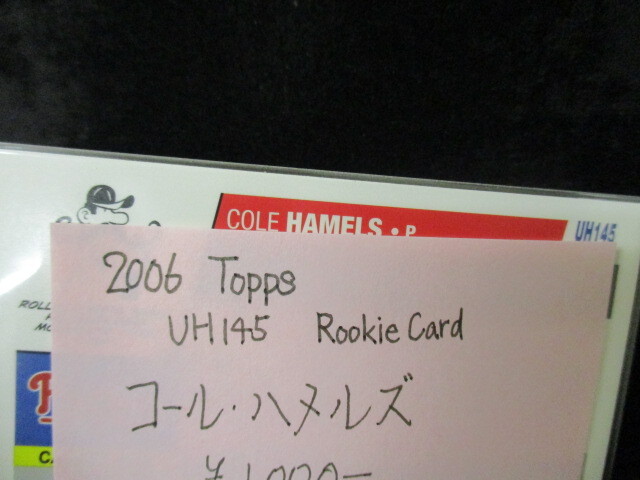 COLE HAMELS • P
UH145
2006 Topps
UH145 Rookie Card
コール・ハメルズ
¥1,000-
ROLL